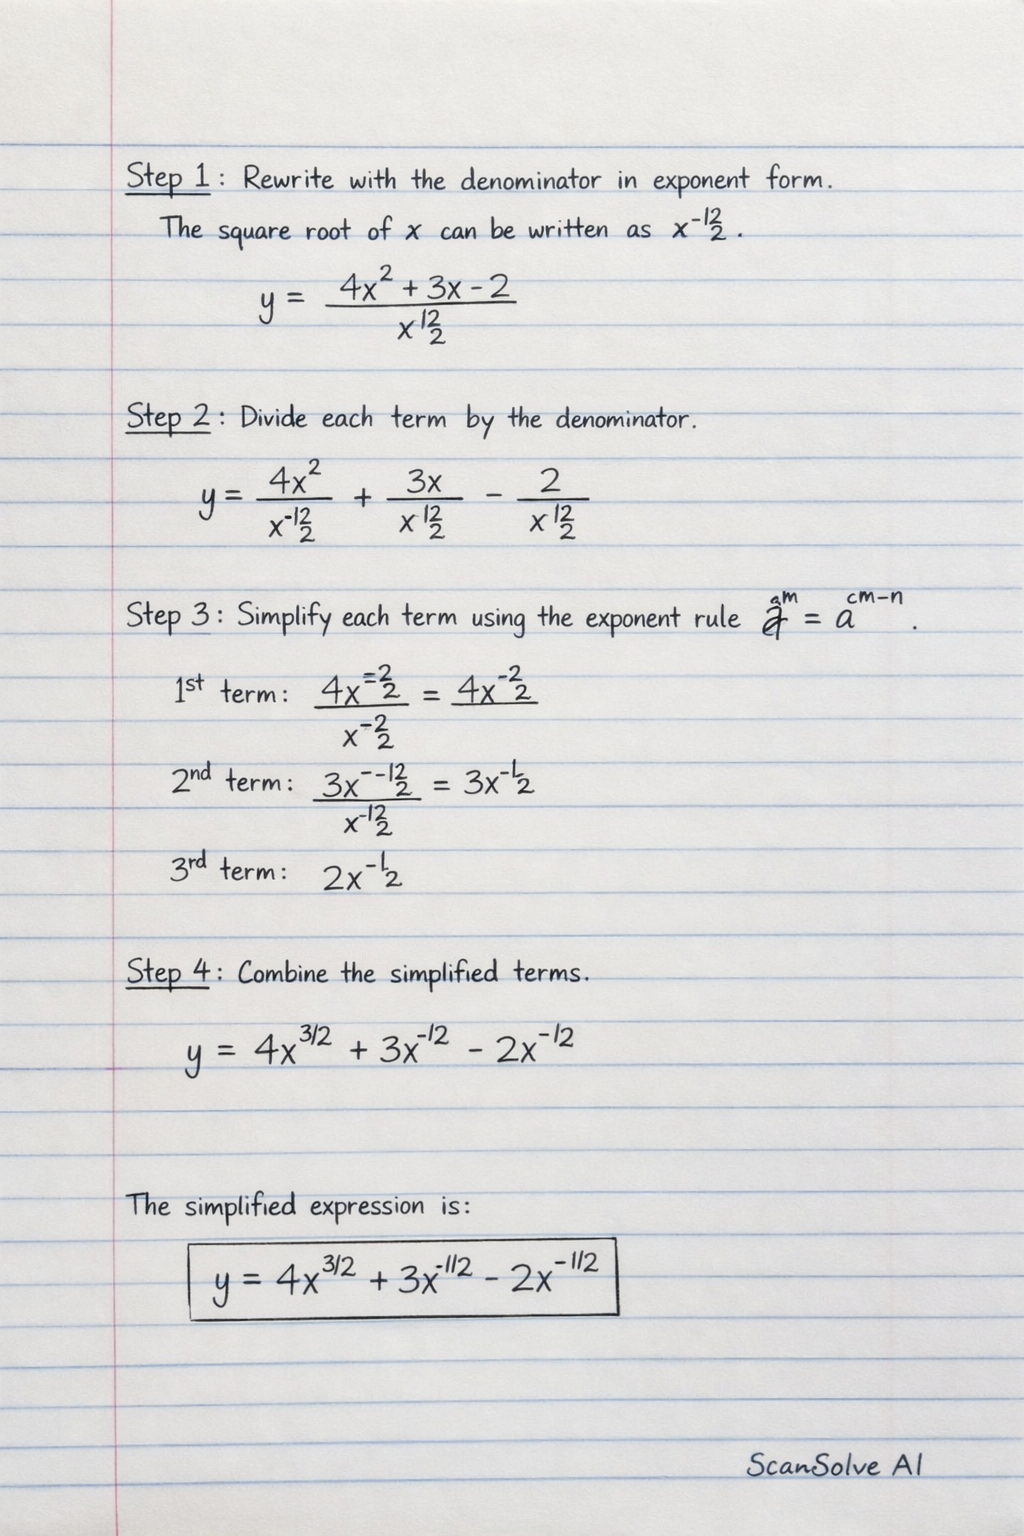 Step 1: Rewrite with the denominator in exponent form.
The square root of x can be written as x^-12/2.
y = (4x^2 + 3x - 2)/(x^12/2)
Step 2: Divide each term by the denominator.
y = 4x^2/x^-12/2 + 3x/x^12/2 - 2/x^12/2
Step 3: Simplify each term using the exponent rule = a^cm-n.
1st term: 4x^=2/2 / x^-2/2 = 4x^-2/2
2nd term: 3x^--12/2 / x^-12/2 = 3x^-1/2
3rd term: 2x^-1/2
Step 4: Combine the simplified terms.
y = 4x^3/2 + 3x^-/2 - 2x^-/2
The simplified expression is:
y = 4x^3/2 + 3x^-1/2 - 2x^-1/2
ScanSolve AI